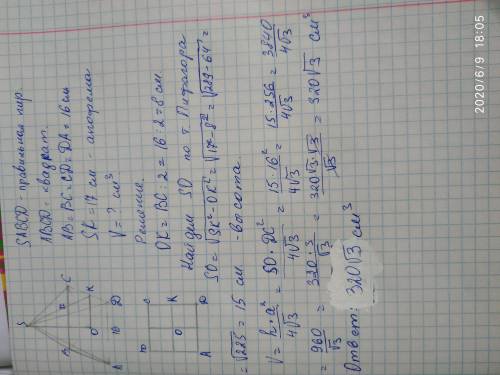 SABCD - правильная пир.
ABCD - квадрат.
AB = BC = CD = DA = 16 см
SK = 17 см - апофема
V = ? см³
Решение.
OK = BC : 2 = 16 : 2 = 8 см.
Найдем SO по т. Пифагора
SO = √SK² - OK² = √17² - 8² = √289 - 64 =
= √225 = 15 см. - высота
V = h · a² / 4√3 = SO · DC² / 4√3 = 15 · 16² / 4√3 = 15 · 256 / 4√3 = 3840 / 4√3
= 960 / √3 = 320 · 3 / √3 = 320√3 · √3 / √3 = 320√3 см³
Ответ: 320√3 см³
S
C
K
O
D
A
C
K
O
D
A
2020/6/9 18:05